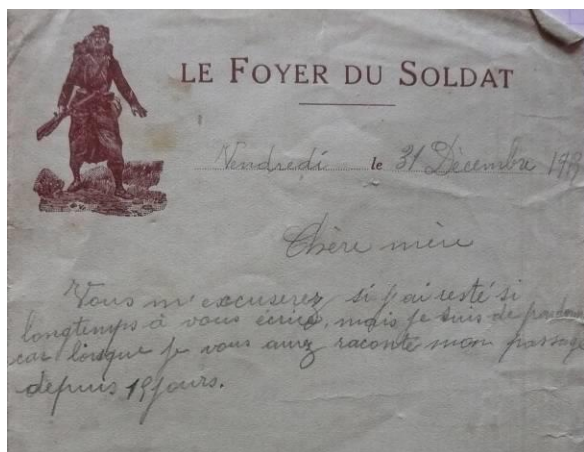 LE FOYER DU SOLDAT
Vendredi le 31 Décembre
Chère mère
Vous m'excuserez si j'ai resté si
longtemps à vous écrire, mais je suis de
car lorsque je vous aurez raconté mon passage
depuis 19 jours.